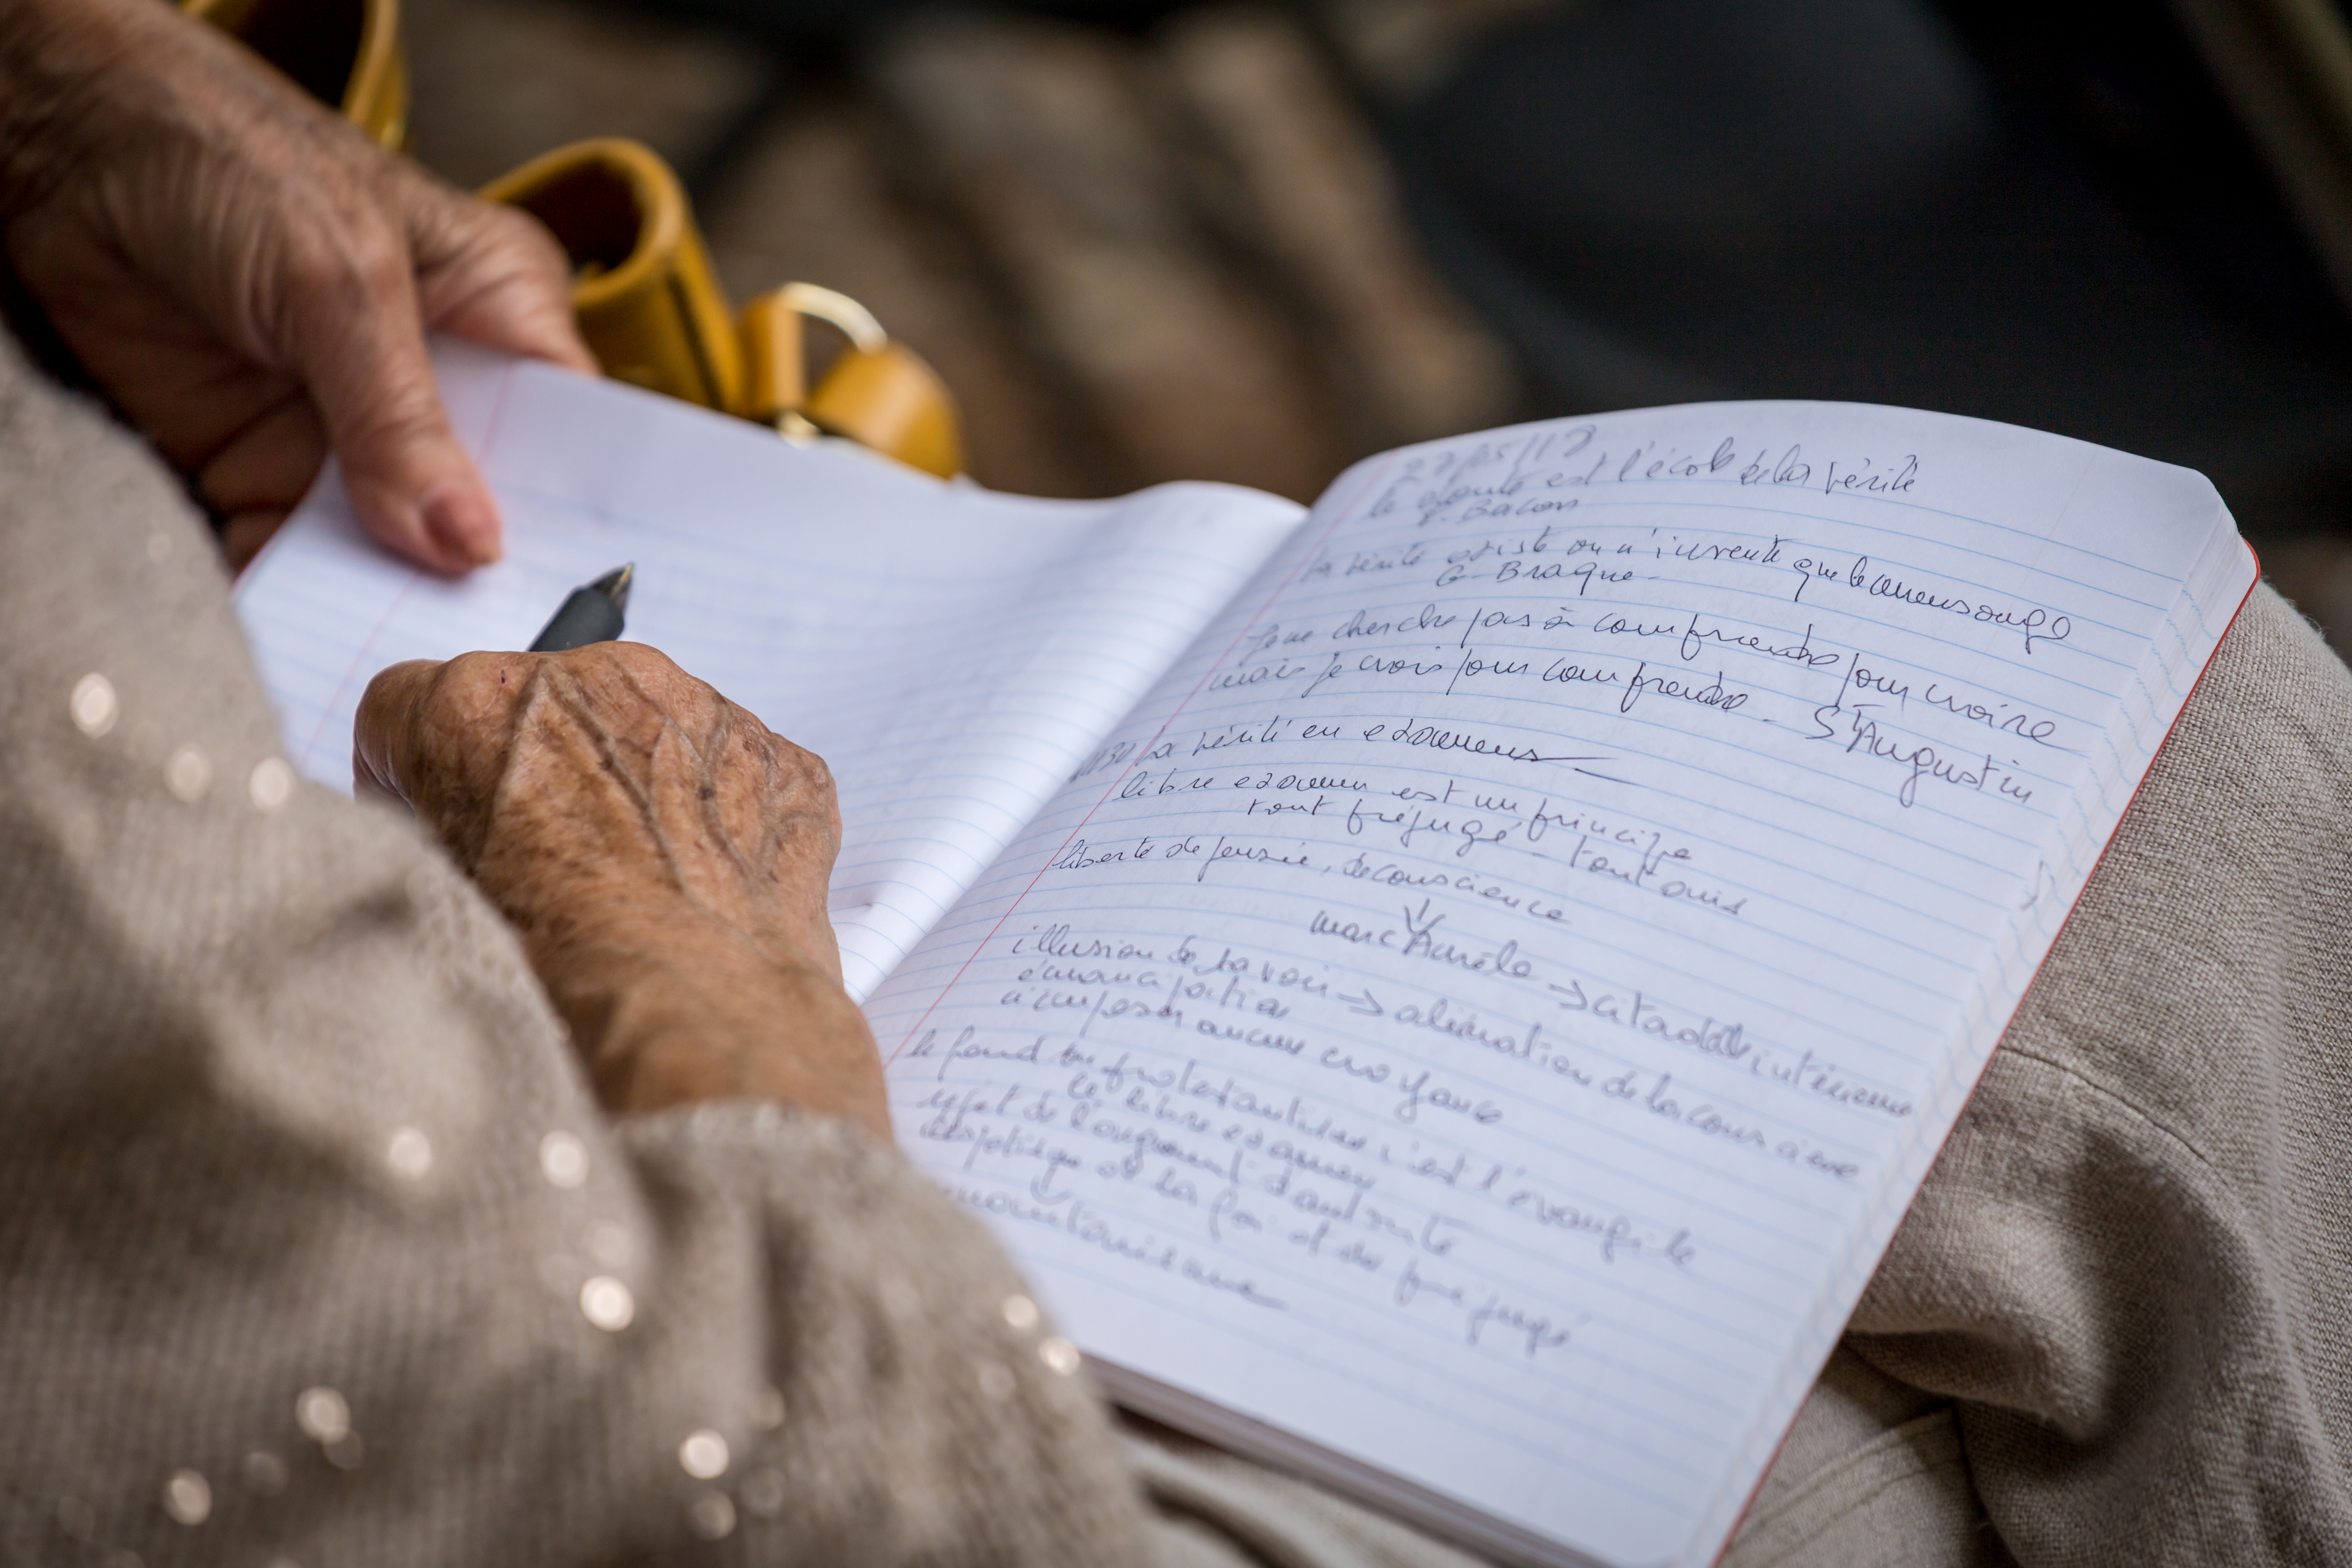 27/05/17
le doute est l'école de la vérité
F. Bacon
la vérité existe on n'invente que le mensonge
G. Braque.
Je ne cherche pas à comprendre pour croire
mais je crois pour comprendre. St Augustin
La vérité en examens
libre examen est un principe
tout préjugé - tout avis
liberté de pensée, de conscience
Marc Aurèle → citadelle intérieure
illusion de savoir → aliénation de la conscience
émancipation
n'imposer aucune croyance
le fond du protestantisme c'est l'évangile
le libre examen
rejet de l'argument d'autorité
de la foi et du préjugé